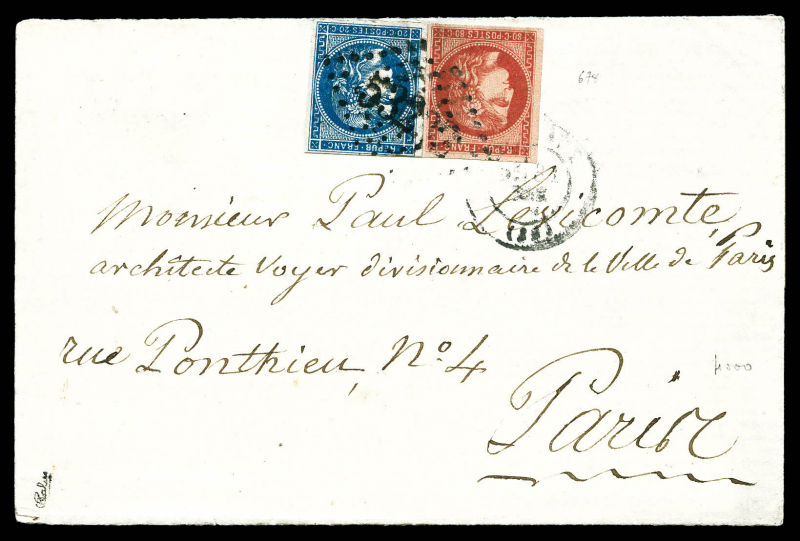 20·C·POSTES·20·C·
80·C·POSTES·80·C·
RÉPUB·FRANC·
RÉPUB·FRANC·
678
Monsieur Paul Levicomte,
architecte Voyer divisionnaire de la Ville de Paris
rue Ponthieu, No. 4
4000
Paris
Calves